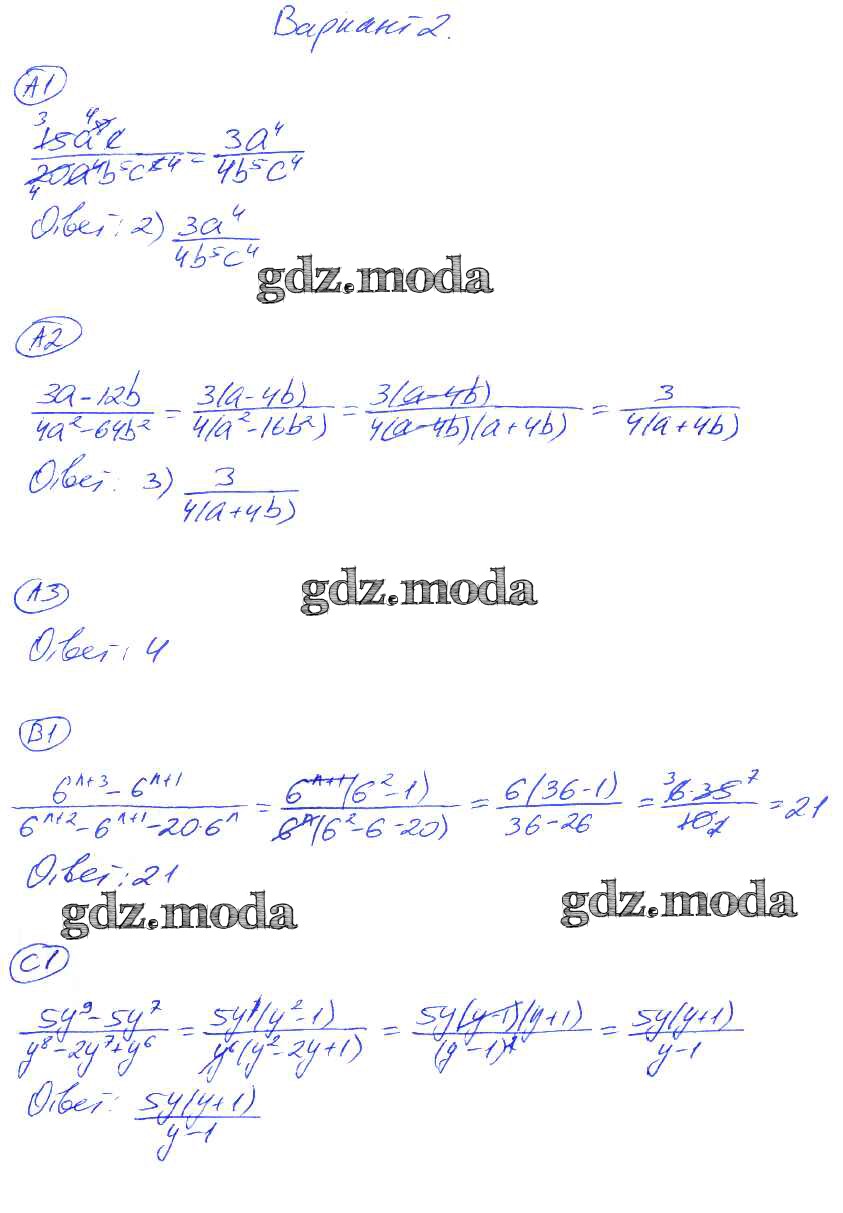 Вариант 2.
А1
15a⁸c / 20a⁴b⁵c⁵ = 3a⁴ / 4b⁵c⁴
Ответ: 2) 3a⁴ / 4b⁵c⁴
gdz.moda
А2
3a-12b / 4a²-64b² = 3(a-4b) / 4(a²-16b²) = 3(a-4b) / 4(a-4b)(a+4b) = 3 / 4(a+4b)
Ответ: 3) 3 / 4(a+4b)
gdz.moda
А3
Ответ: 4
В1
6ⁿ⁺³-6ⁿ⁺¹ / 6ⁿ⁺²-6ⁿ⁺¹-20·6ⁿ = 6ⁿ⁺¹(6²-1) / 6ⁿ(6²-6-20) = 6(36-1) / 36-26 = 6·35 / 10 = 21
Ответ: 21
gdz.moda gdz.moda
С1
5y⁹-5y⁷ / y⁸-2y⁷+y⁶ = 5y⁷(y²-1) / y⁶(y²-2y+1) = 5y(y-1)(y+1) / (y-1)² = 5y(y+1) / y-1
Ответ: 5y(y+1) / y-1